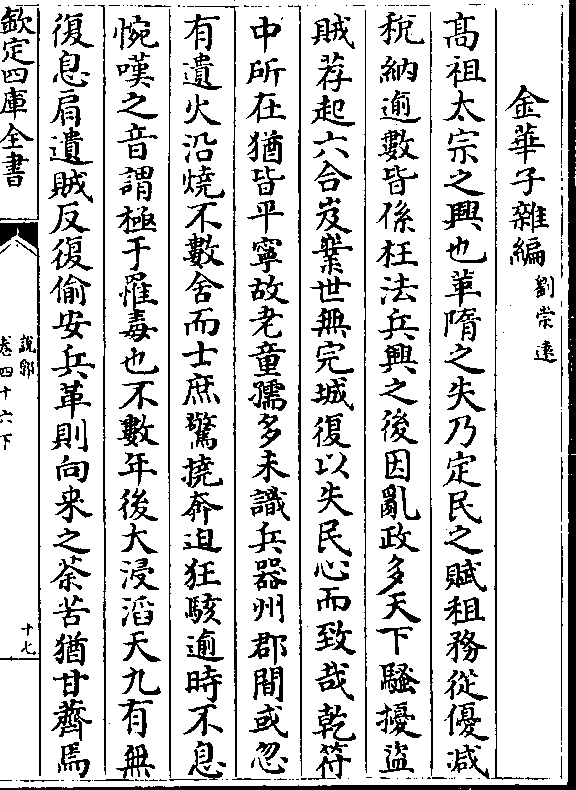 金華子雜編劉崇遠
髙祖太宗之興也革隋之失乃定民之賦租務從優減
稅納逾數皆係枉法兵興之後因亂政多天下騷擾盜
賊荐起六合岌業世無完城復以失民心而致哉乾符
中所在猶皆平寧故老童孺多未識兵器州郡間或忽
有遺火沿燒不數舍而士庶驚撓奔迫狂駭逾時不息
惋嘆之音謂極于罹毒也不數年後大浸滔天九有無
復息肩遺賊反復偷安兵革則向来之荼苦猶甘薺焉
欽定四庫全書
說郛
卷四十六下
十七